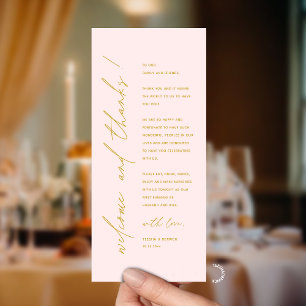 welcome and thanks!
TO OUR
FAMILY AND FRIENDS,
THANK YOU AND IT MEANS
THE WORLD TO US TO HAVE
YOU HERE.
WE ARE SO HAPPY AND
FORTUNATE TO HAVE SUCH
WONDERFUL PEOPLE IN OUR
LIVES AND ARE HONORED
TO HAVE YOU CELEBRATING
WITH US.
PLEASE EAT, DRINK, DANCE,
ENJOY AND MAKE MEMORIES
WITH US TONIGHT AS OUR
FIRST EVENING AS
HUSBAND AND WIFE.
with love,
& DOMINIC